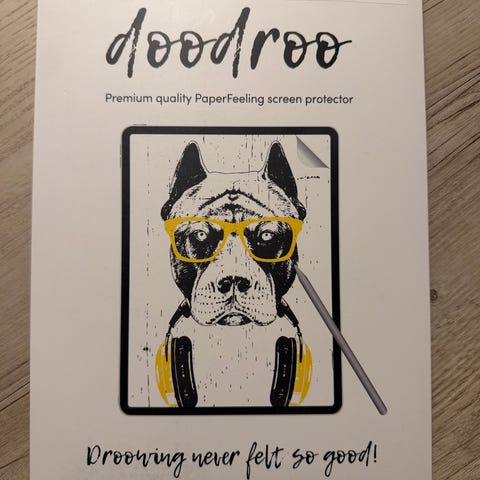 doodroo
Premium quality PaperFeeling screen protector
Droowing never felt so good!